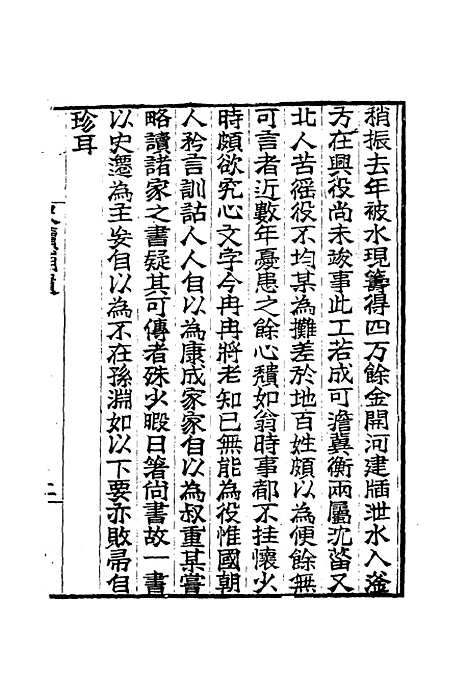 稍振去年被水現籌得四万餘金開河建牐泄水入滏
方在興役尚未竣事此工若成可澹冀衡兩屬沈菑又
北人苦徭役不均某為攤差於地百姓頗以為便餘無
可言者近數年憂患之餘心穨如翁時事都不挂懷少
時頗欲究心文字今冉冉將老知已無能為役惟國朝
人矜言訓詁人人自以為康成家家自以為叔重某嘗
略讀諸家之書疑其可傳者殊少暇日箸尚書故一書
以史遷為主妄自以為不在孫淵如以下要亦敝帚自
珍耳
二